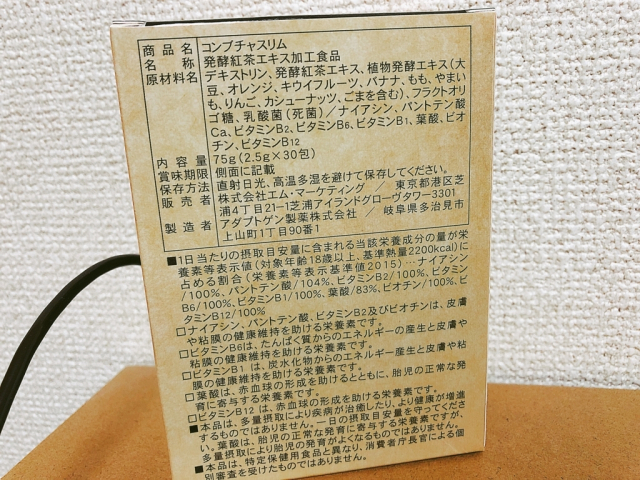 商品名 コンブチャスリム
名称 発酵紅茶エキス加工食品
原材料名 デキストリン、発酵紅茶エキス、植物発酵エキス(大
豆、オレンジ、キウイフルーツ、バナナ、もも、やまい
も、りんご、カシューナッツ、ごまを含む)、フラクトオリ
ゴ糖、乳酸菌(死菌)/ナイアシン、パントテン酸
Ca、ビタミンB2、ビタミンB6、ビタミンB1、葉酸、ビオ
チン、ビタミンB12
内容量 75g(2.5g×30包)
賞味期限 側面に記載
保存方法 直射日光、高温多湿を避けて保存してください。
販売者 株式会社エム・マーケティング / 東京都港区芝
浦4丁目21-1芝浦アイランドグローヴタワー3301
製造者 アダプトゲン製薬株式会社 / 岐阜県多治見市
上山町1丁目90番1
■1日当たりの摂取目安量に含まれる当該栄養成分の量が栄
養素等表示値(対象年齢18歳以上、基準熱量2200kcal)に
占める割合(栄養素等表示基準値2015)…ナイアシン
/100%、パントテン酸/104%、ビタミンB2/100%、ビタミン
B6/100%、ビタミンB1/100%、葉酸/83%、ビオチン/100%、ビ
タミンB12/100%
□ナイアシン、パントテン酸、ビタミンB2及びビオチンは、皮膚
や粘膜の健康維持を助ける栄養素です。
□ビタミンB6は、たんぱく質からのエネルギーの産生と皮膚や
粘膜の健康維持を助ける栄養素です。
□ビタミンB1 は、炭水化物からのエネルギー産生と皮膚や粘
膜の健康維持を助ける栄養素です。
□葉酸は、赤血球の形成を助けるとともに、胎児の正常な発
育に寄与する栄養素です。
□ビタミンB12 は、赤血球の形成を助ける栄養素です。
■本品は、多量摂取により疾病が治癒したり、より健康が増進
するものではありません。一日の摂取目安量を守ってくださ
い。葉酸は、胎児の正常な発育に寄与する栄養素ですが、
多量摂取により胎児の発育がよくなるものではありません。
■本品は、特定保健用食品と異なり、消費者庁長官による個
別審査を受けたものではありません。